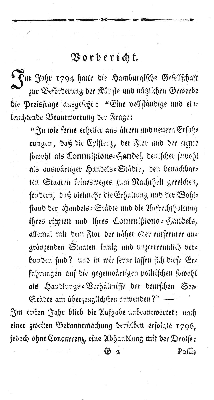 Vorbericht.
Im Jahr 1794 hatte die Hamburgische Gesellschaft
zur Beförderung der Künste und nützlichen Gewerbe
die Preisfrage ausgesetzt: "Eine vollständige und ein-
leuchtende Beantwortung der Frage:
"In wie ferne erhellet aus ältern und neuern Erfah-
rungen, daß die Existenz, der Flor und der eigne
sowohl als Commissions-Handel, deutscher sowohl
als auswärtiger Handels-Städte, den benachbar-
ten Staaten keinesweges zum Nachtheil gereichen,
sondern, daß vielmehr die Erhaltung und der Wohl-
stand der Handels-Städte und die Aufrechthaltung
ihres eignen und ihres Commissions-Handels,
allemal mit dem Flor der näher oder entfernter an-
gränzenden Staaten innig und unzertrennlich verbun-
den sind? und in wie ferne lassen sich diese Er-
fahrungen auf die gegenwärtigen politischen sowohl
als Handlungs-Verhältnisse der deutschen See-
Städte am überzeuglichsten anwenden?" —
Im ersten Jahr blieb die Aufgabe unbeantwortet; nach
einer zweiten Bekanntmachung derselben erfolgte 1796,
jedoch ohne Concurrenz, eine Abhandlung mit der Devise: